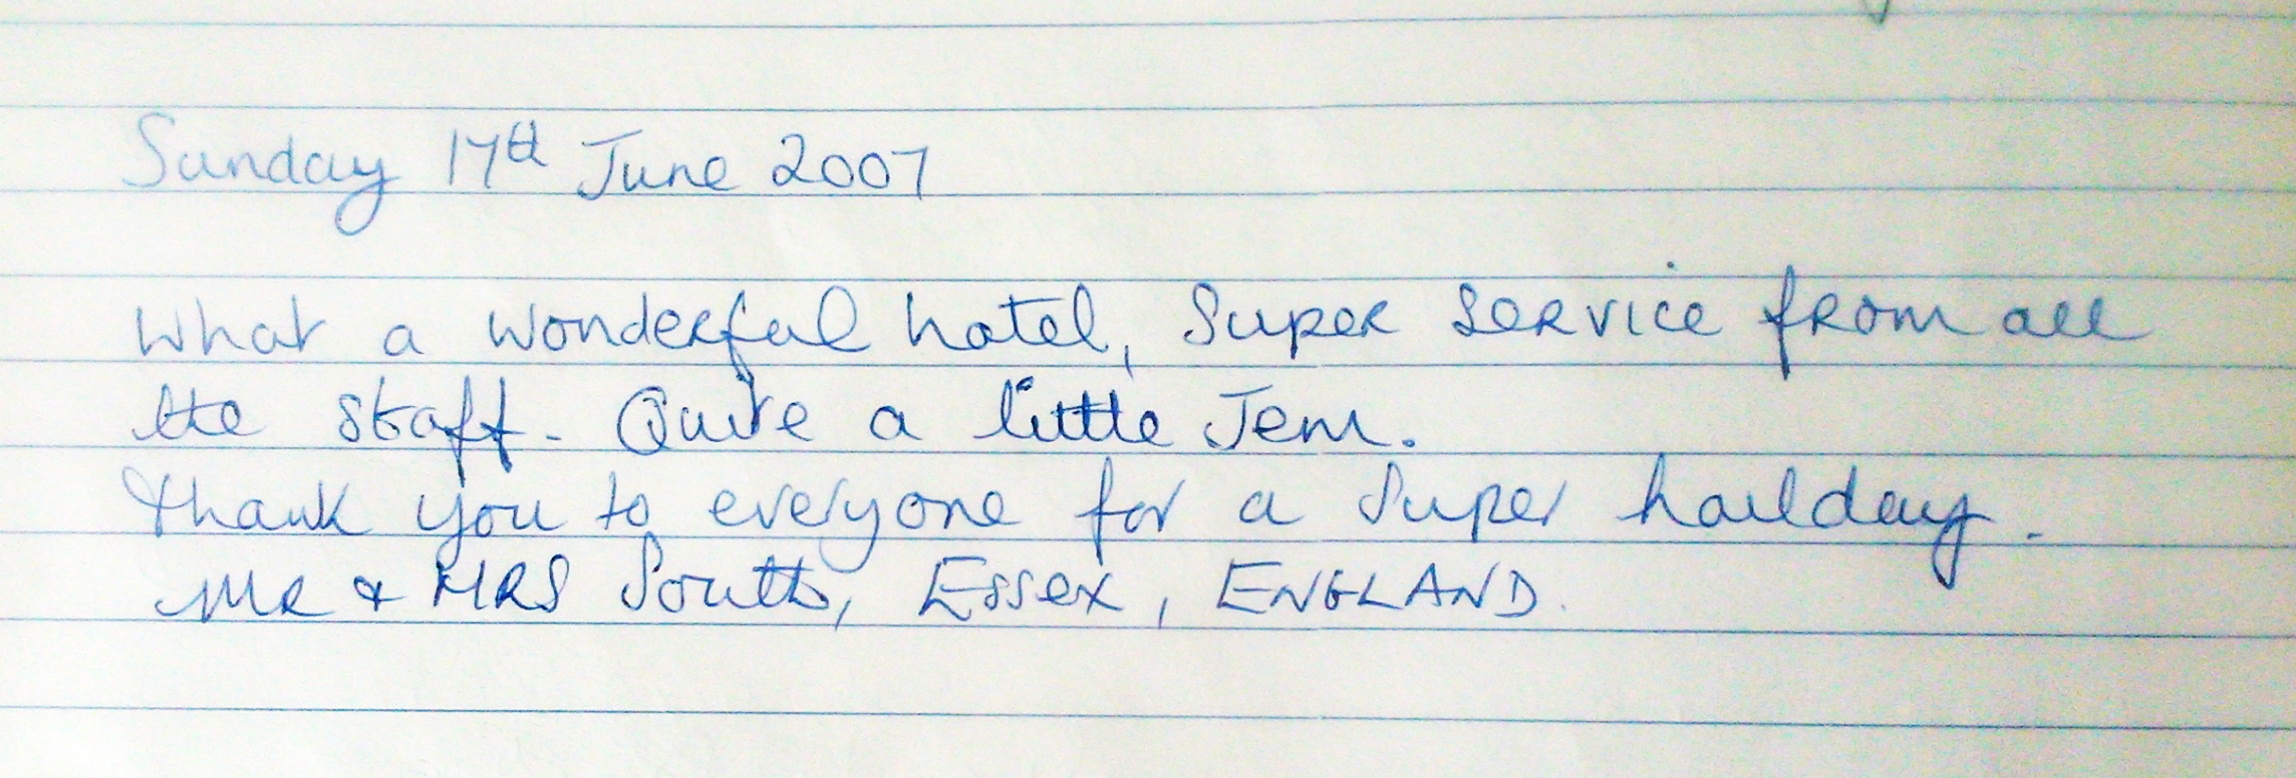 Sunday 17th June 2007
What a wonderful hotel, Super Service from all
the staff. Quite a little Jem.
Thank you to everyone for a super hailday.
MR & MRS South, Essex, ENGLAND.